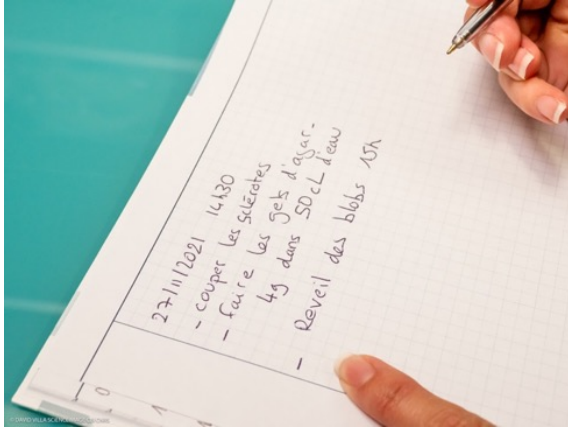 27/11/2021 14h30
- couper les sclérotes
- faire les gels d'agar.
4g dans 50cL d'eau
- Reveil des blobs 15h
0
1